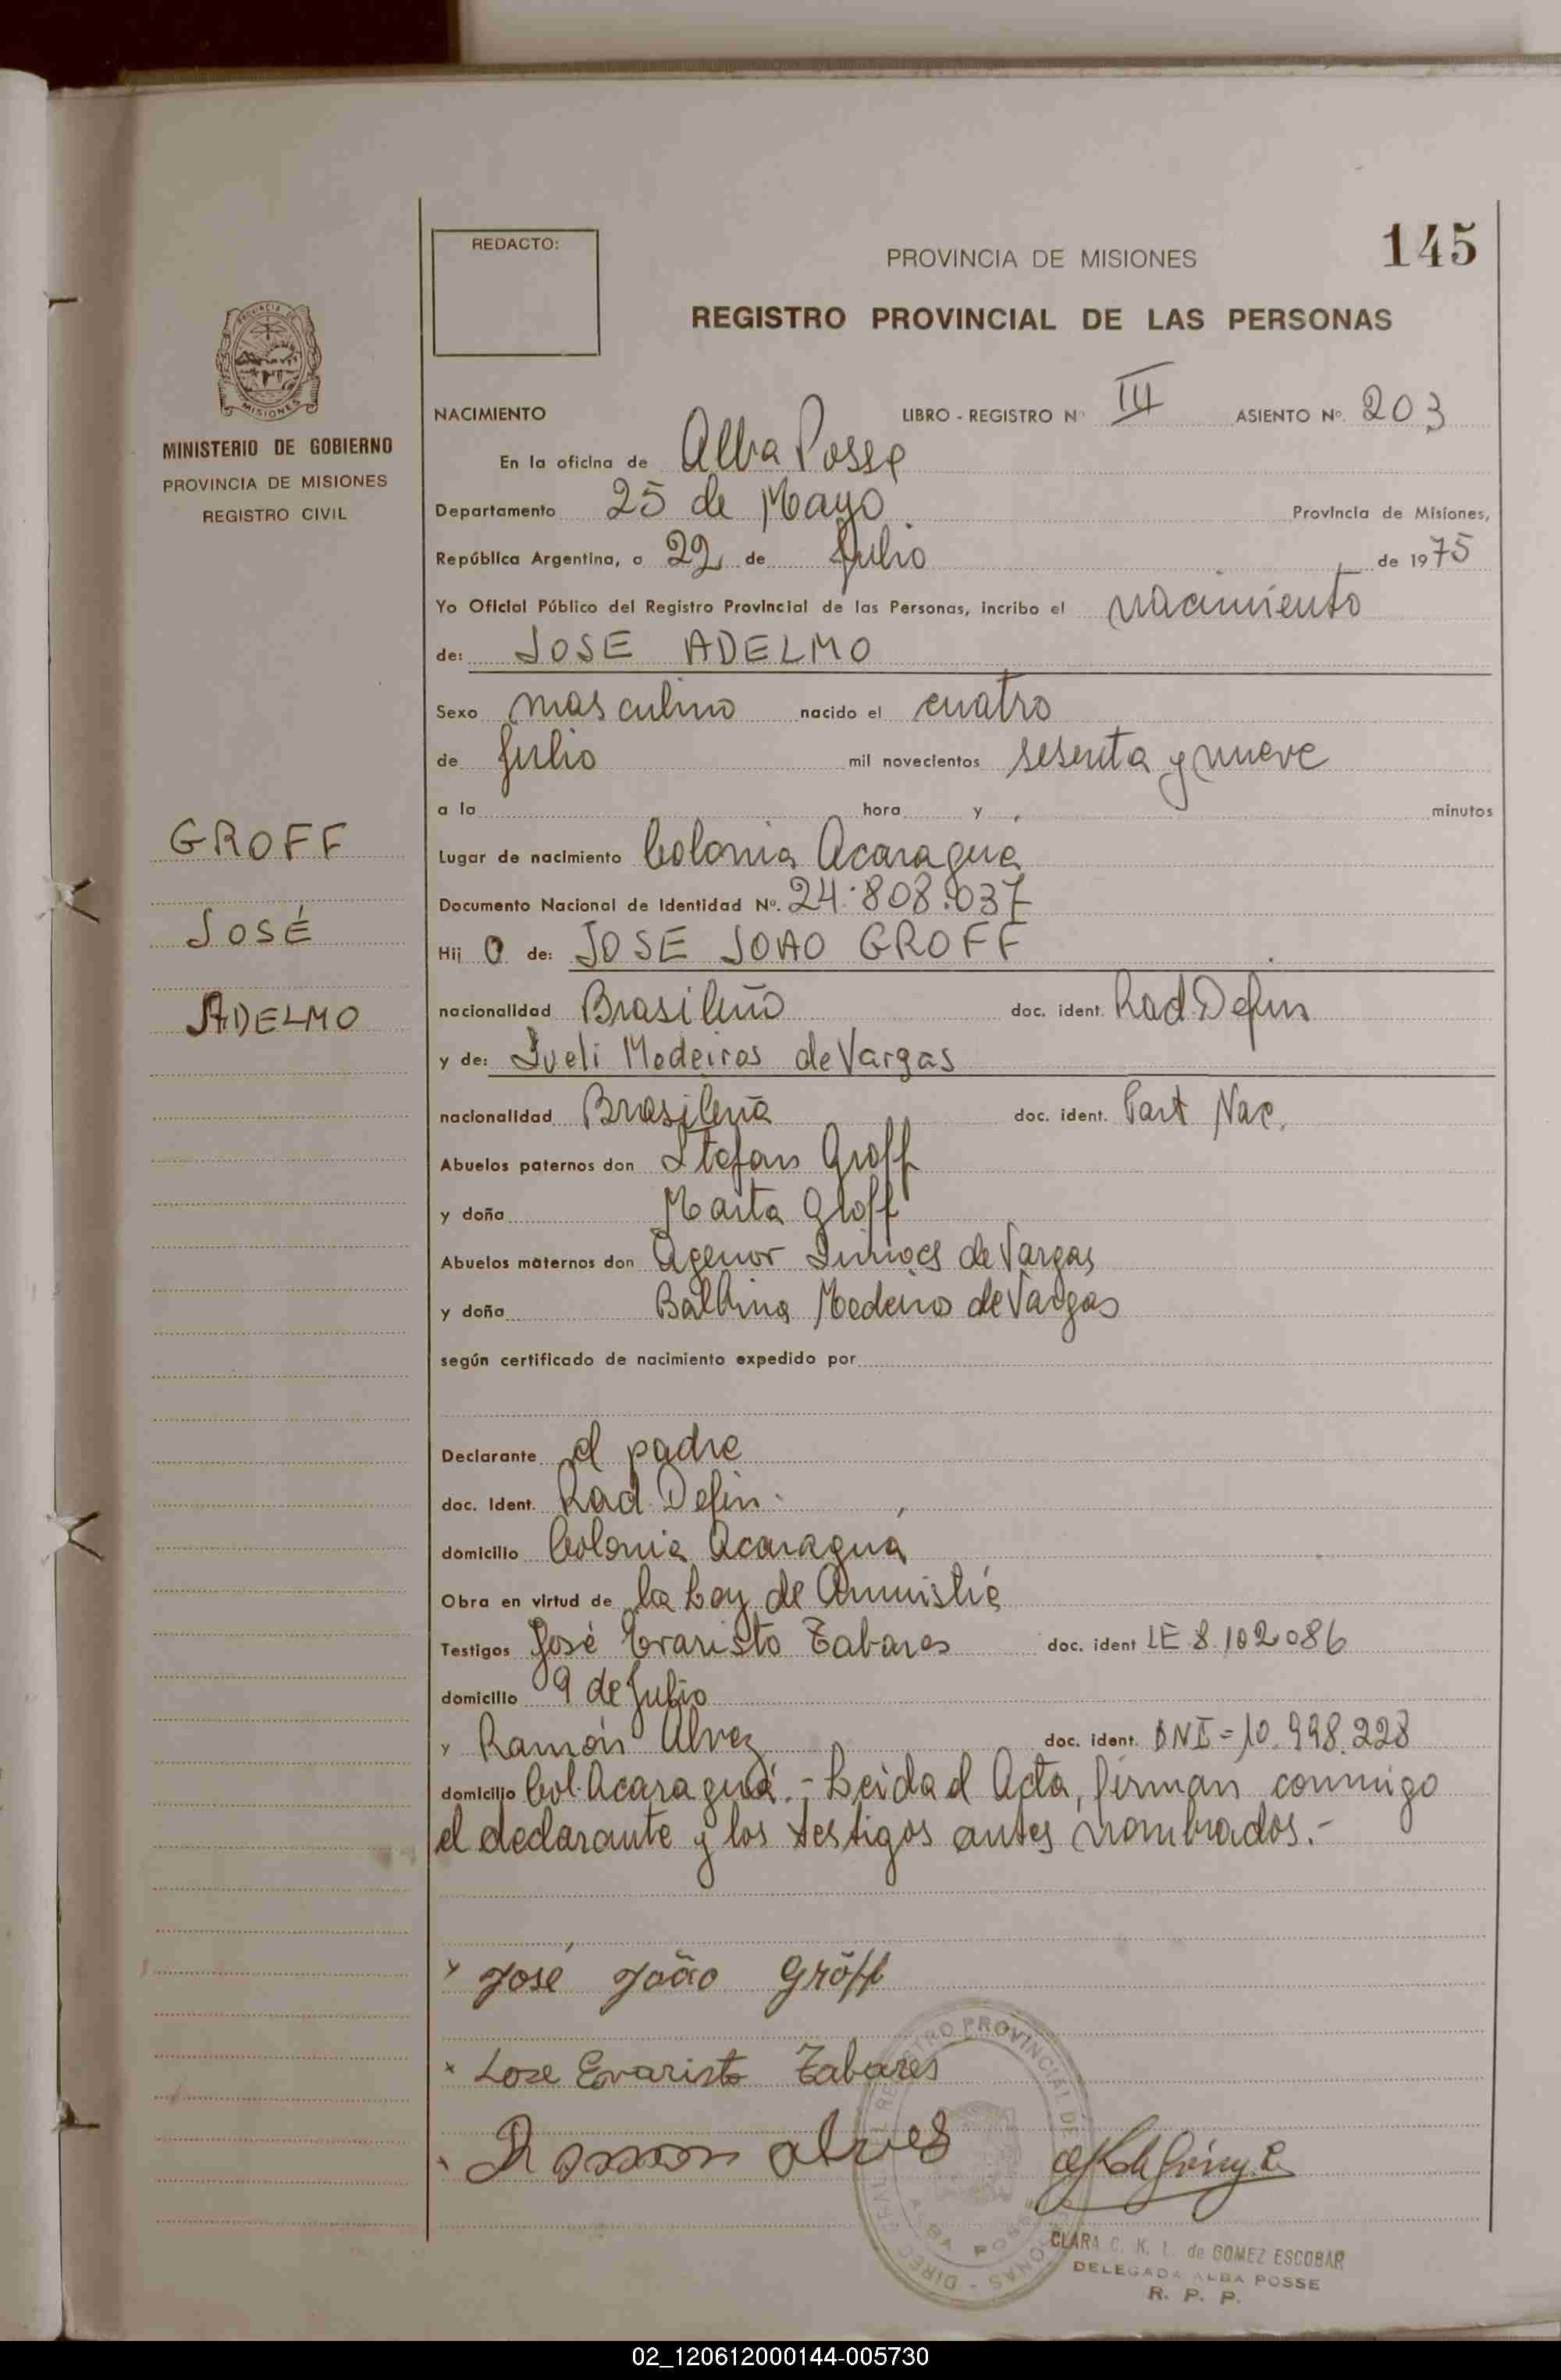 REDACTO:
PROVINCIA DE MISIONES
145
REGISTRO PROVINCIAL DE LAS PERSONAS
PROVINCIA DE MISIONES
MINISTERIO DE GOBIERNO
PROVINCIA DE MISIONES
REGISTRO CIVIL
GROFF
JOSÉ
ADELMO
NACIMIENTO LIBRO - REGISTRO Nº III ASIENTO Nº. 203
En la oficina de Alba Posse
Departamento 25 de Mayo Provincia de Misiones,
República Argentina, a 22 de Julio de 1975
Yo Oficial Público del Registro Provincial de las Personas, incribo el nacimiento
de: JOSE ADELMO
Sexo masculino nacido el cuatro
de Julio mil novecientos sesenta y nueve
a la hora y minutos
Lugar de nacimiento Colonia Acaragua
Documento Nacional de Identidad Nº. 24.808.037
Hij o de: JOSE JOAO GROFF
nacionalidad Brasileño doc. ident. Rad. Defin
y de: Sueli Medeiros de Vargas
nacionalidad Brasileña doc. ident. Part Nac.
Abuelos paternos don Stefan Groff
y doña Marta Groff
Abuelos maternos don Agenor de Vargas
y doña Balbina Medeiros de Vargas
según certificado de nacimiento expedido por
Declarante el padre
doc. Ident. Rad. Defin.
domicilio Colonia Acaragua
Obra en virtud de la Ley de Amnistía
Testigos José Evaristo Tabares doc. ident LE 8.102086
domicilio 9 de Julio
y Ramón Alvez doc. ident. DNI=10.998.228
domicilio Col. Acaraguá.- Leida el Acta, firman conmigo
el declarante y los testigos antes nombrados.-
x José João Gröff
x Jose Evaristo Tabares
Ramon alves
CLARA C. K. L. de GOMEZ ESCOBAR
DELEGADA ALBA POSSE
R. P. P.
02_120612000144-005730